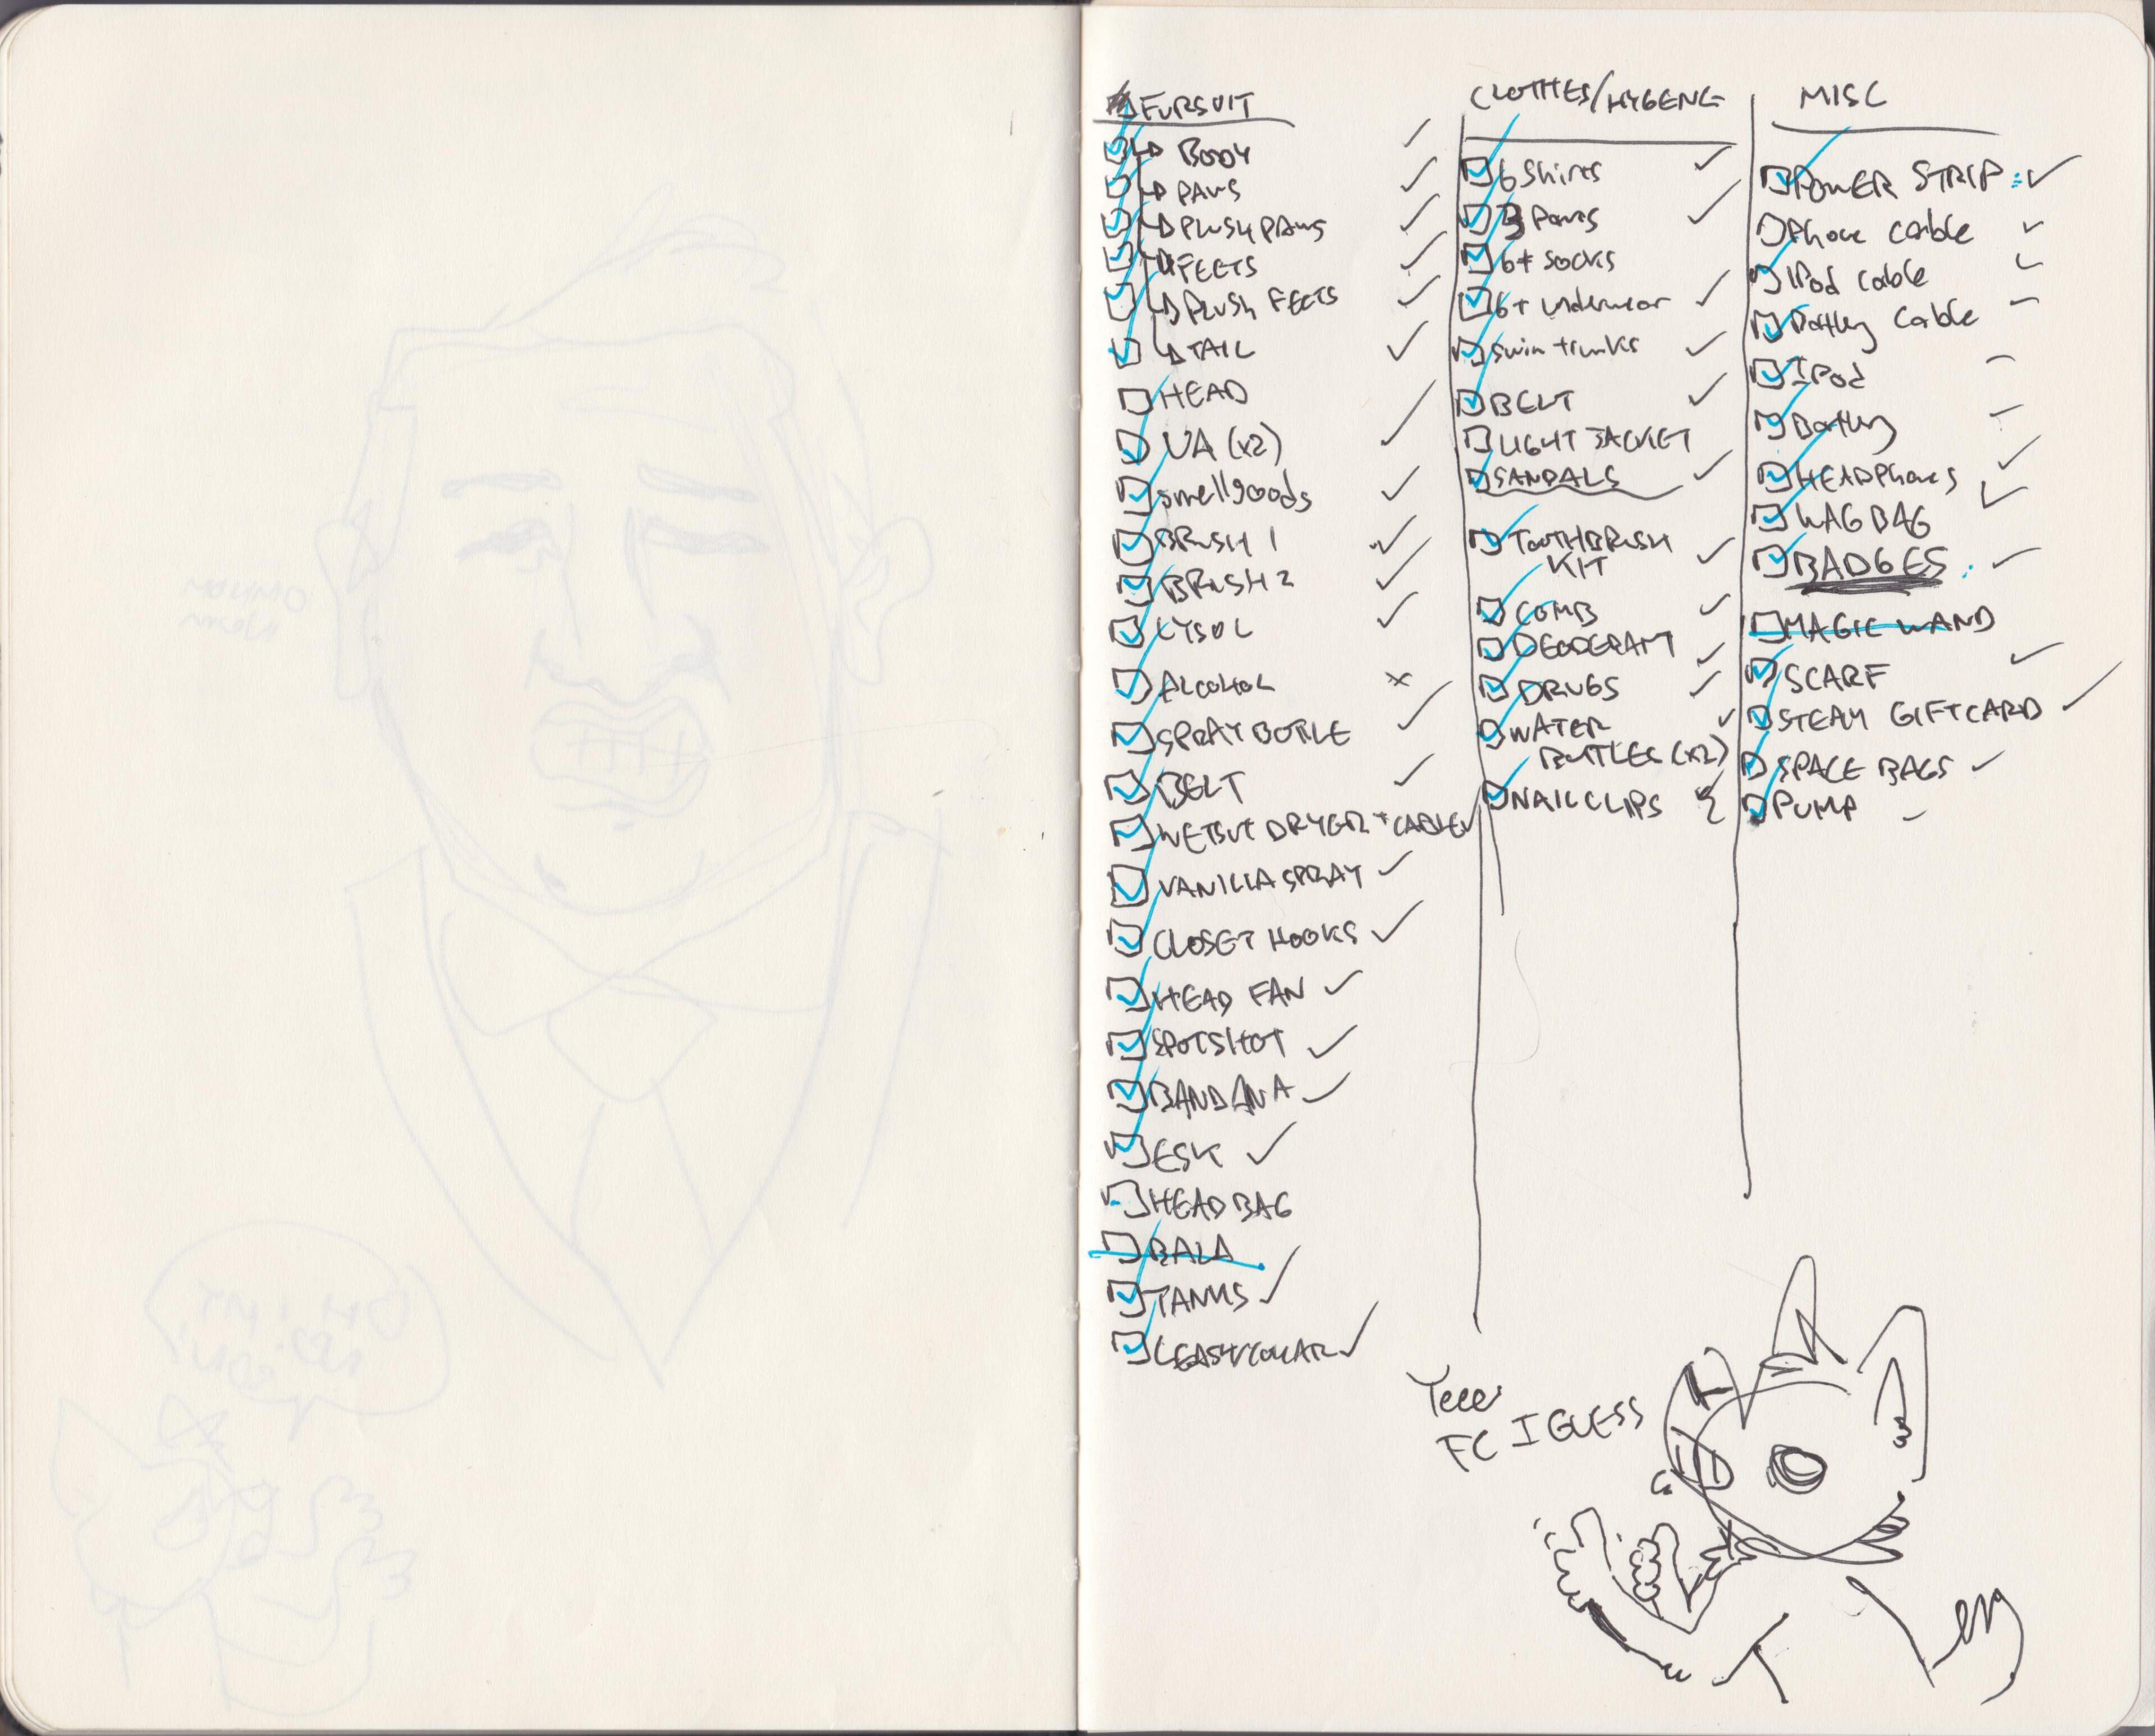 FURSUIT
BODY
PAWS
PLUSH PAWS
FEETS
PLUSH FEETS
TAIL
HEAD
UA (x2)
smellgoods
BRUSH 1
BRUSH 2
LYSOL
ALCOHOL
SPRAY BOTTLE
BELT
DRYER + CABLE
VANILLA SPRAY
CLOSET HOOKS
HEAD FAN
SPOTSHOT
BANDANA
ESK
HEAD BAG
BALA
TANKS
LEASH/COLLAR
CLOTHES/HYGENE
6 Shirts
3 Pants
6+ socks
6+ underwear
swim trunks
BELT
LIGHT JACKET
SANDALS
TOOTHBRUSH
KIT
COMB
DEODERANT
DRUGS
WATER
BOTTLES (x2)
NAILCLIPS
MISC
POWER STRIP
Phone cable
IPod cable
Battery Cable
IPod
Battery
HEADPhones
WAG BAG
BADGES
MAGIC WAND
SCARF
STEAM GIFTCARD
SPACE BAGS
PUMP
Yeee
FC I GUESS